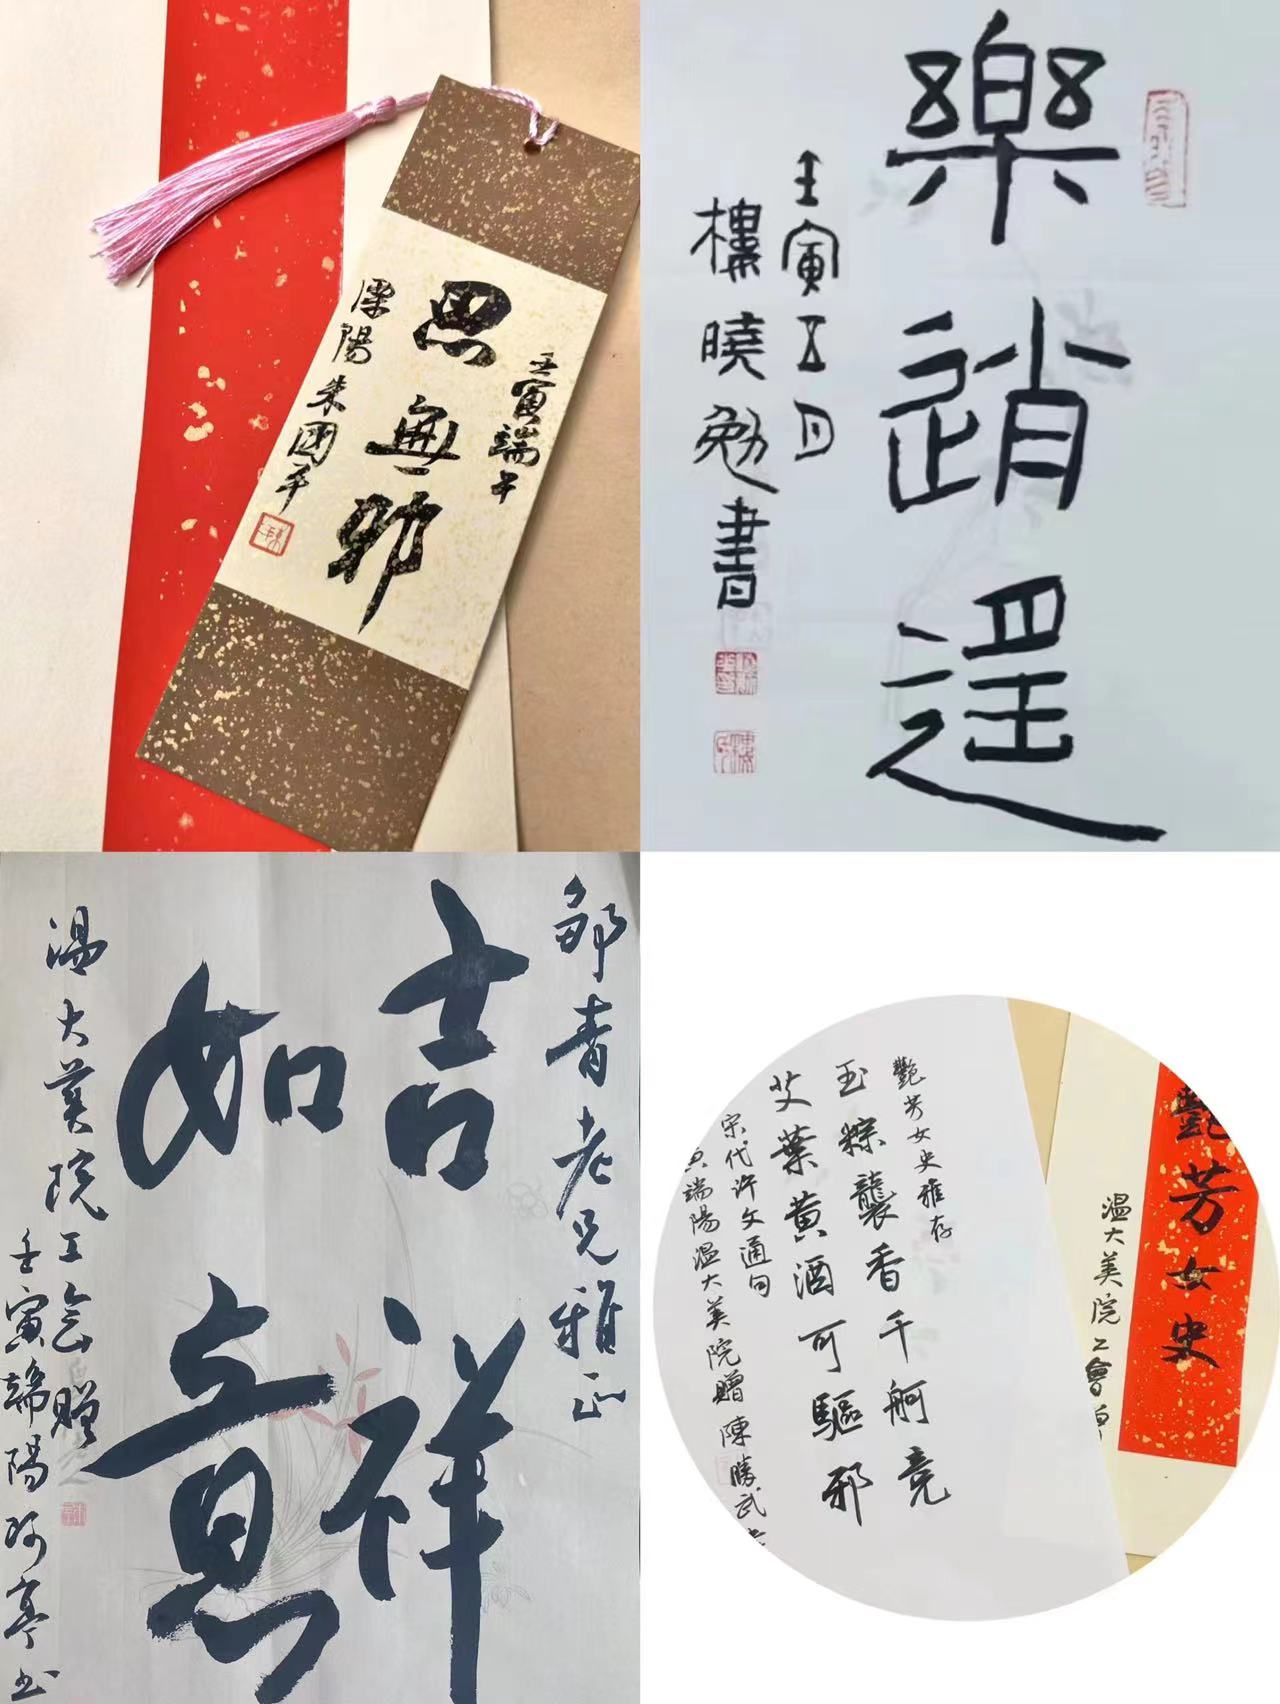 思無邪
壬寅端午
溧陽朱國平
樂逍遥
壬寅五月
樓曉勉書
邹青老兄雅正
吉祥
如意
温大美院工会贈
壬寅端陽阿亭书
艷芳女史雅存
玉粽襲香千舸竞
艾葉黄酒可驅邪
宋代许文通句
端陽温大美院贈陳勝武
艷芳女史
温大美院工會